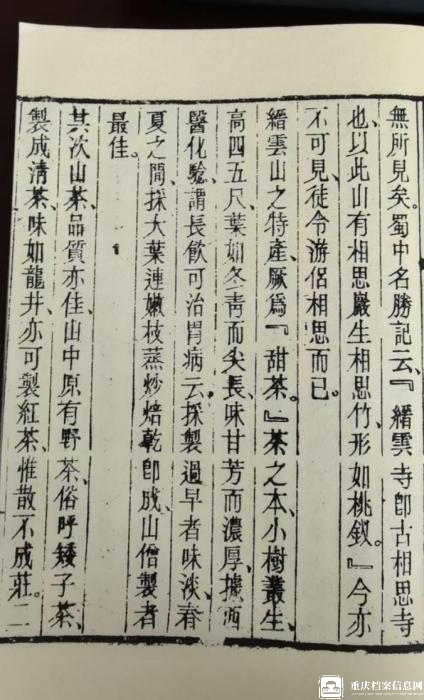 無所見矣。蜀中名勝記云、『縉雲寺卽古相思寺
也、以此山有相思巖生相思竹、形如桃釵。』今亦
不可見、徒令游侶相思而已。
縉雲山之特產、厥爲『甜茶。』茶之本、小樹叢生、
高四五尺、葉如冬靑而尖長、味甘芳而濃厚、據西
醫化驗、謂長飮可治胃病云、採製過早者味淡、春
夏之間、採大葉連嫩枝蒸炒焙乾卽成、山僧製者
最佳。
其次山茶、品質亦佳、山中原有野茶、俗呼矮子茶、
製成淸茶、味如龍井、亦可製紅茶、惟散不成莊。二
重庆档案信息网